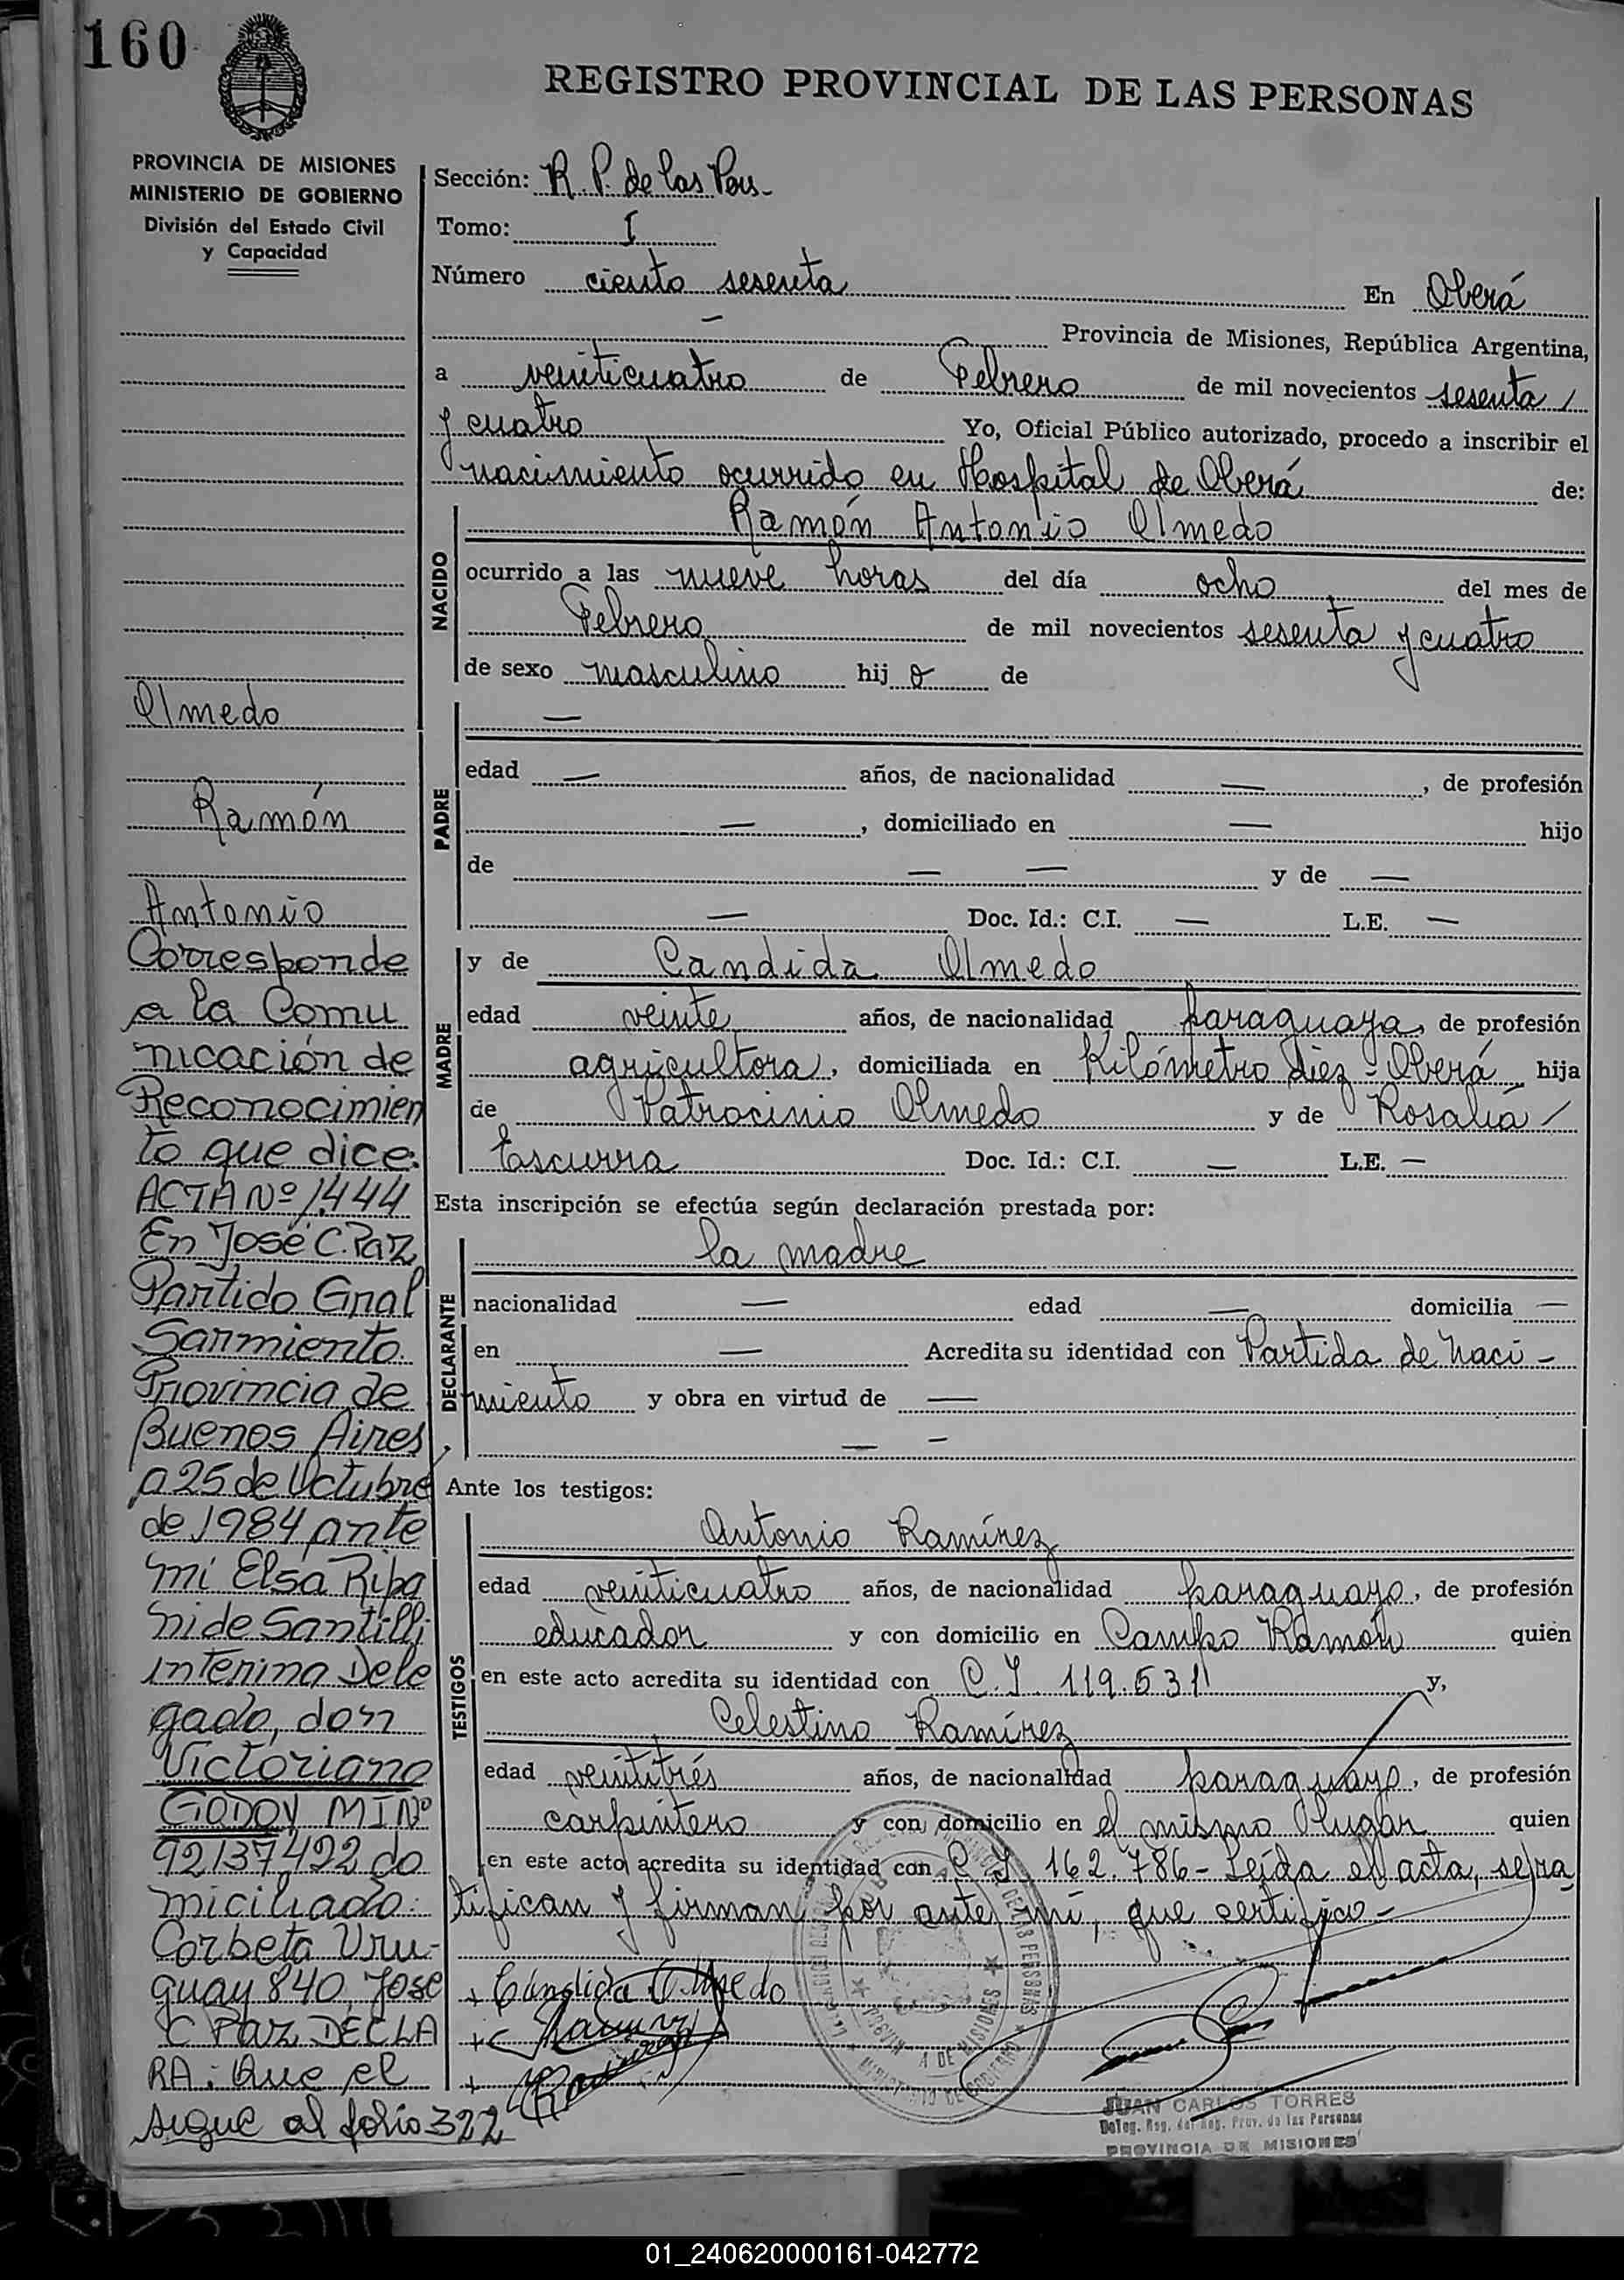 160
REGISTRO PROVINCIAL DE LAS PERSONAS
PROVINCIA DE MISIONES
MINISTERIO DE GOBIERNO
División del Estado Civil
y Capacidad
Olmedo
Ramón
Antonio
Corresponde
a la Comu
nicación de
Reconocimien
to que dice:
ACTA Nº 1.444
En José C. Paz
Partido Gnal
Sarmiento
Provincia de
Buenos Aires,
a 25 de Octubre
de 1984 ante
mi Elsa Ripa
ni de Santilli
interina Dele
gado, don
Victoriano
GODOY MINº
92137422 do
miciliado:
Corbeta Uru-
guay 840, Jose
C Paz DECLA
RA: Que el
sigue al folio 322
Sección: R. P. de las Pers.
Tomo: I
Número ciento sesenta En Oberá
— Provincia de Misiones, República Argentina,
a veinticuatro de Febrero de mil novecientos sesenta /
y cuatro Yo, Oficial Público autorizado, procedo a inscribir el
nacimiento ocurrido en Hospital de Oberá de:
NACIDO
Ramón Antonio Olmedo
ocurrido a las nueve horas del día ocho del mes de
Febrero de mil novecientos sesenta y cuatro
de sexo masculino hij o de
PADRE
—
edad — años, de nacionalidad —, de profesión
—, domiciliado en — hijo
de — — y de —
— Doc. Id.: C.I. — L.E. —
MADRE
y de Candida Olmedo
edad veinte años, de nacionalidad paraguaya, de profesión
agricultora, domiciliada en Kilómetro diez - Oberá hija
de Patrocinio Olmedo y de Rosalía /
Escurra Doc. Id.: C.I. — L.E. —
Esta inscripción se efectúa según declaración prestada por:
DECLARANTE
la madre
nacionalidad — edad — domicilia —
en — Acredita su identidad con Partida de Naci -
miento y obra en virtud de —
— —
Ante los testigos:
TESTIGOS
Antonio Ramírez
edad veinticuatro años, de nacionalidad paraguayo, de profesión
educador y con domicilio en Campo Ramón quien
en este acto acredita su identidad con C.I. 119.531 y,
Celestino Ramírez
edad veintitrés años, de nacionalidad paraguayo, de profesión
carpintero y con domicilio en el mismo lugar quien
en este acto acredita su identidad con C.I. 162.786 - Leída el acta, se ra
tifican y firman por ante mí, que certifico -
+ Candida Olmedo
JUAN CARLOS TORRES
Deleg. Reg. del Reg. Prov. de las Personas
PROVINCIA DE MISIONES
01_240620000161-042772